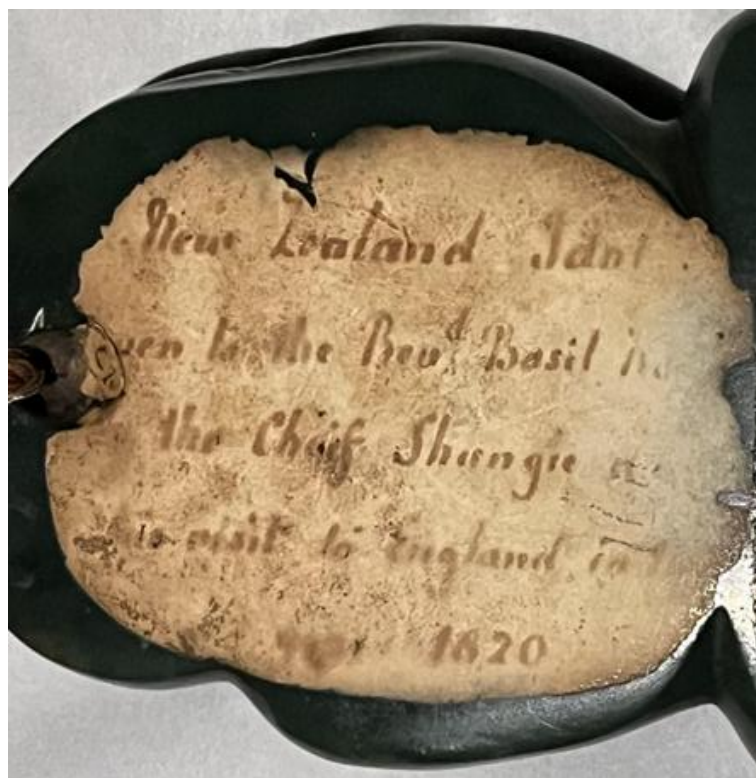 New Zealand Idol
to the Revd Basil
the Cheif Shungie
visit to England in
1820